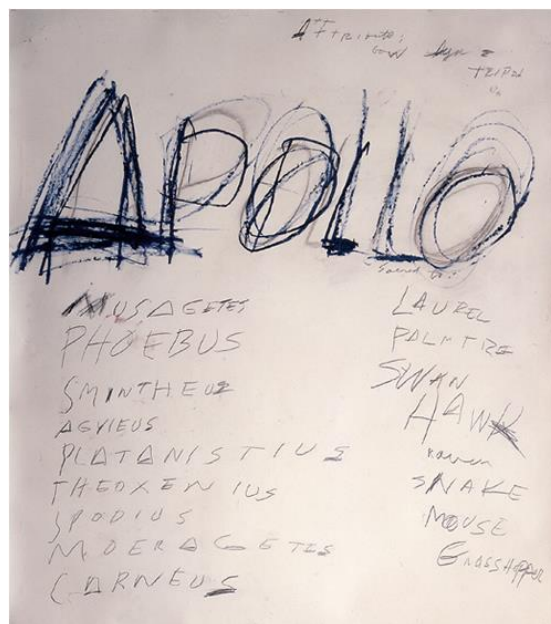 ATTRIBUTE:
BOW lyre &
TRIPOD
APOLLO
Sacred to:
MUSAGETES
PHOEBUS
SMINTHEUS
AGYIEUS
PLATANISTIUS
THEOXENIUS
SPODIUS
MOERAGETES
CARNEUS
LAUREL
PALM TREE
SWAN
HAWK
raven
SNAKE
MOUSE
GRASSHOPPER